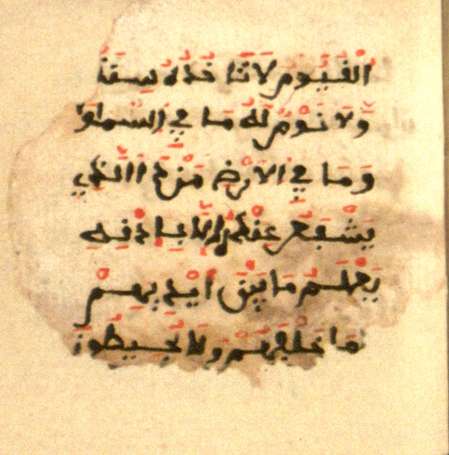 الْقَيُّومُ لَا تَاخُذُهُ سِنَةٌ
وَلَا نَوْمٌ لَهُ مَا فِي السَّمٰوٰ
وَمَا فِي الْاَرْضِ مَنْ ذَا الَّذِي
يَشْفَعُ عِنْدَهُ إِلَّا بِإِذْنِهِ
يَعْلَمُ مَا بَيْنَ أَيْدِيهِمْ
مَا خَلْفَهُمْ وَلَا يُحِيطُونَ